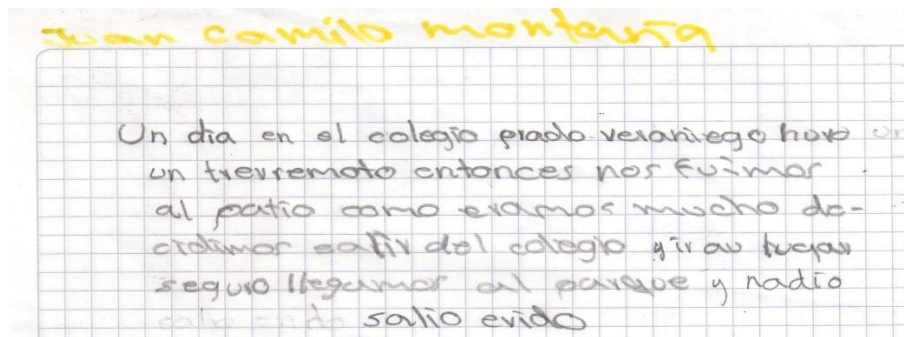 Juan camilo montaña
Un dia en el colegio prado veraniego hovo un
un trevremoto entonces nos fuimos
al patio como eramos mucho de-
cidimos salir del colegio y ir au lugar
seguro llegamos al parque y nadio
salio erido